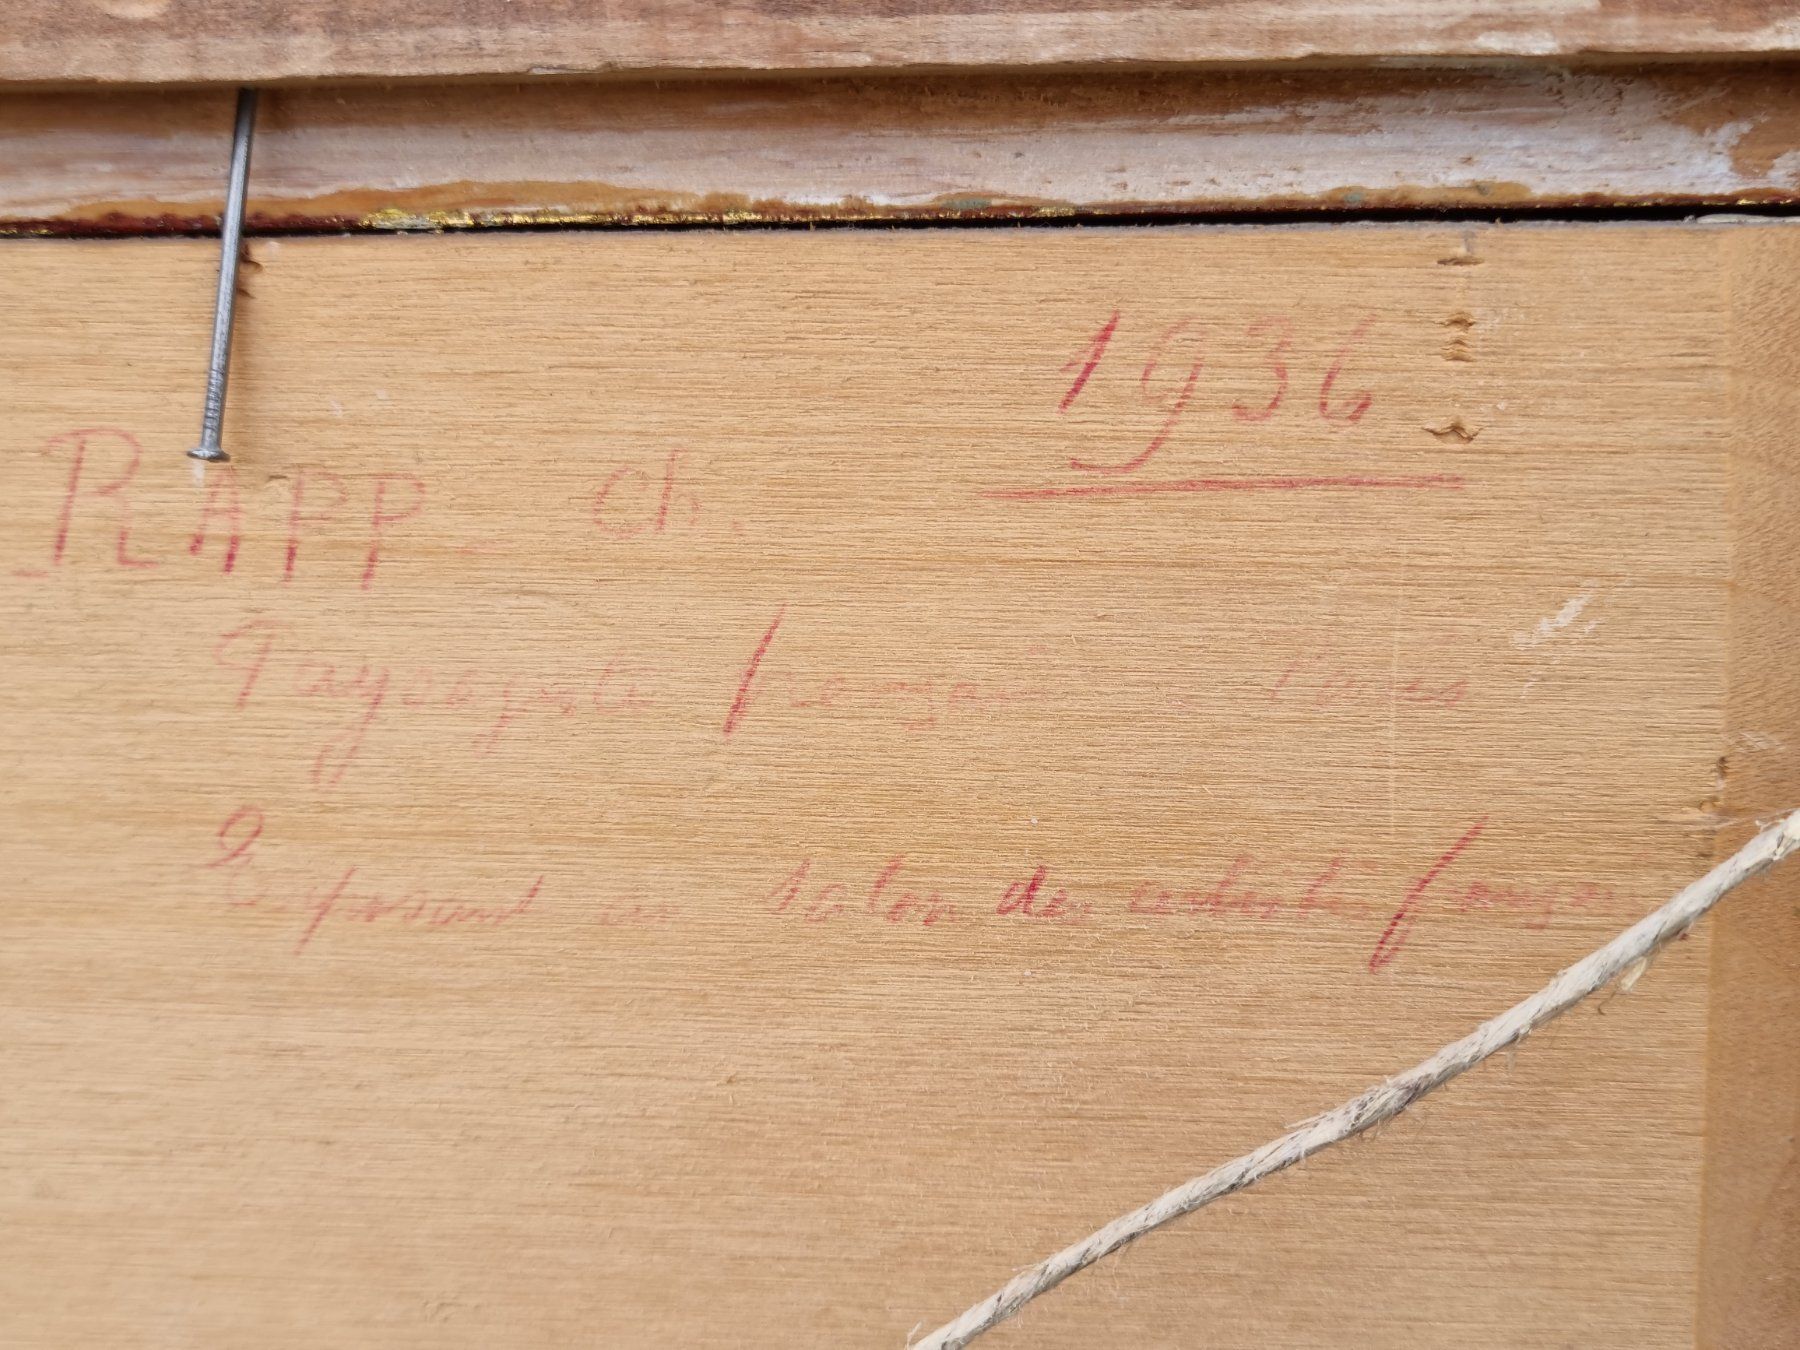 1936
RAPP - Ch.
Paysagiste français Paris
Exposant au salon des artistes français